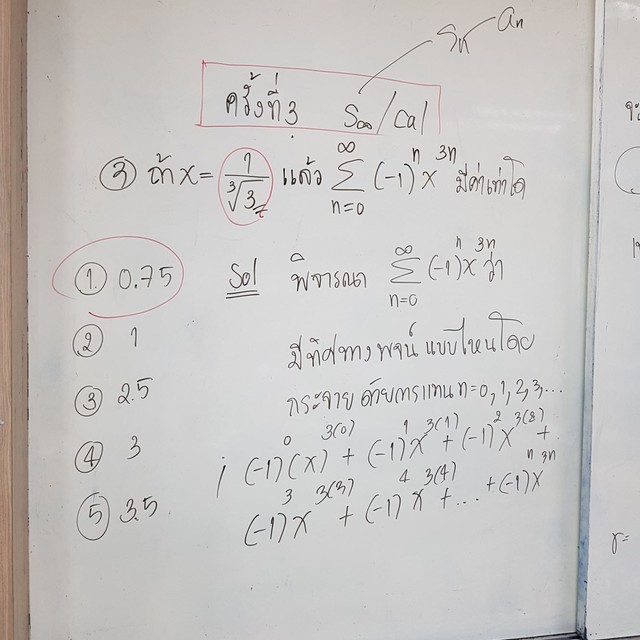 Sₙ aₙ
ครั้งที่ 3 S∞/Cal
③ ถ้า x = 1/∛3 แล้ว ∑_{n=0}^{∞} (-1)ⁿ x³ⁿ มีค่าเท่าใด
① 0.75 Sol พิจารณา ∑_{n=0}^{∞} (-1)ⁿ x³ⁿ ว่า
② 1 มีทิศทางพจน์แบบไหนโดย
③ 2.5 กระจายด้วยการแทน n=0,1,2,3,...
④ 3 (-1)⁰(x)³⁽⁰⁾ + (-1)¹x³⁽¹⁾ + (-1)²x³⁽²⁾ +
⑤ 3.5 (-1)³x³⁽³⁾ + (-1)⁴x³⁽⁴⁾ + ... + (-1)ⁿx³ⁿ
r=